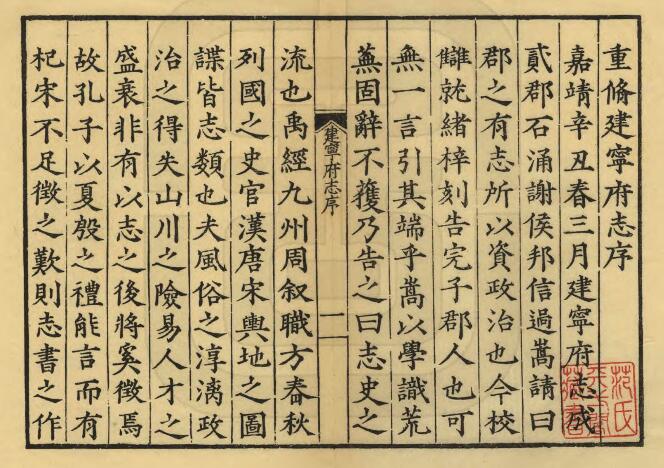 重脩建寧府志序
嘉靖辛丑春三月建寧府志成
貳郡石涌謝侯邦信過蒿請曰
郡之有志所以資政治也今校
讎就緒梓刻告完子郡人也可
無一言引其端乎蒿以學識荒
蕪固辭不獲乃告之曰志史之
建寧府志序
一
流也禹經九州周叙職方春秋
列國之史官漢唐宋輿地之圖
諜皆志類也夫風俗之淳漓政
治之得失山川之險易人才之
盛衰非有以志之後將奚徵焉
故孔子以夏殷之禮能言而有
杞宋不足徵之歎則志書之作